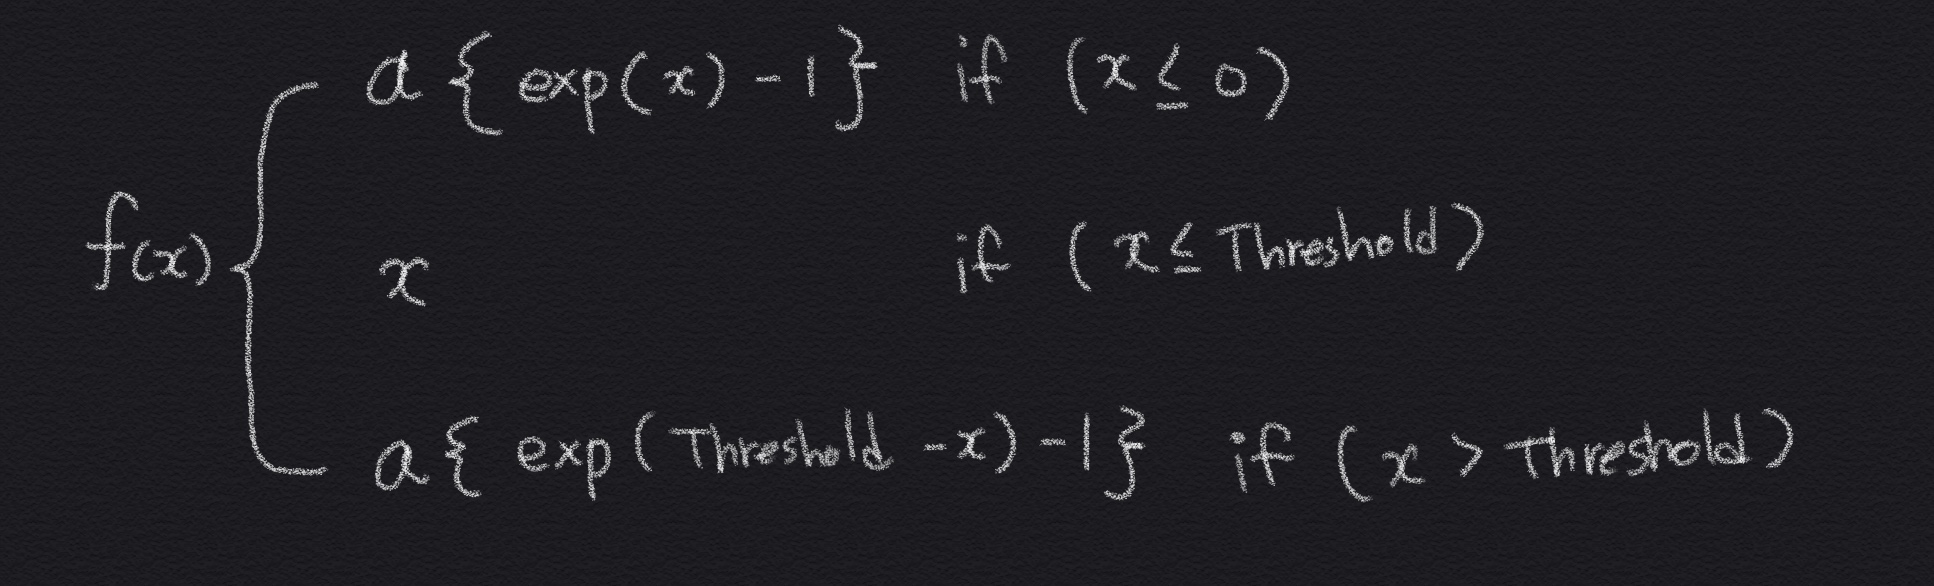 a { exp(x) - 1 } if (x ≤ 0)
f(x) { x if (x ≤ Threshold)
a { exp(Threshold - x) - 1 } if (x > Threshold)